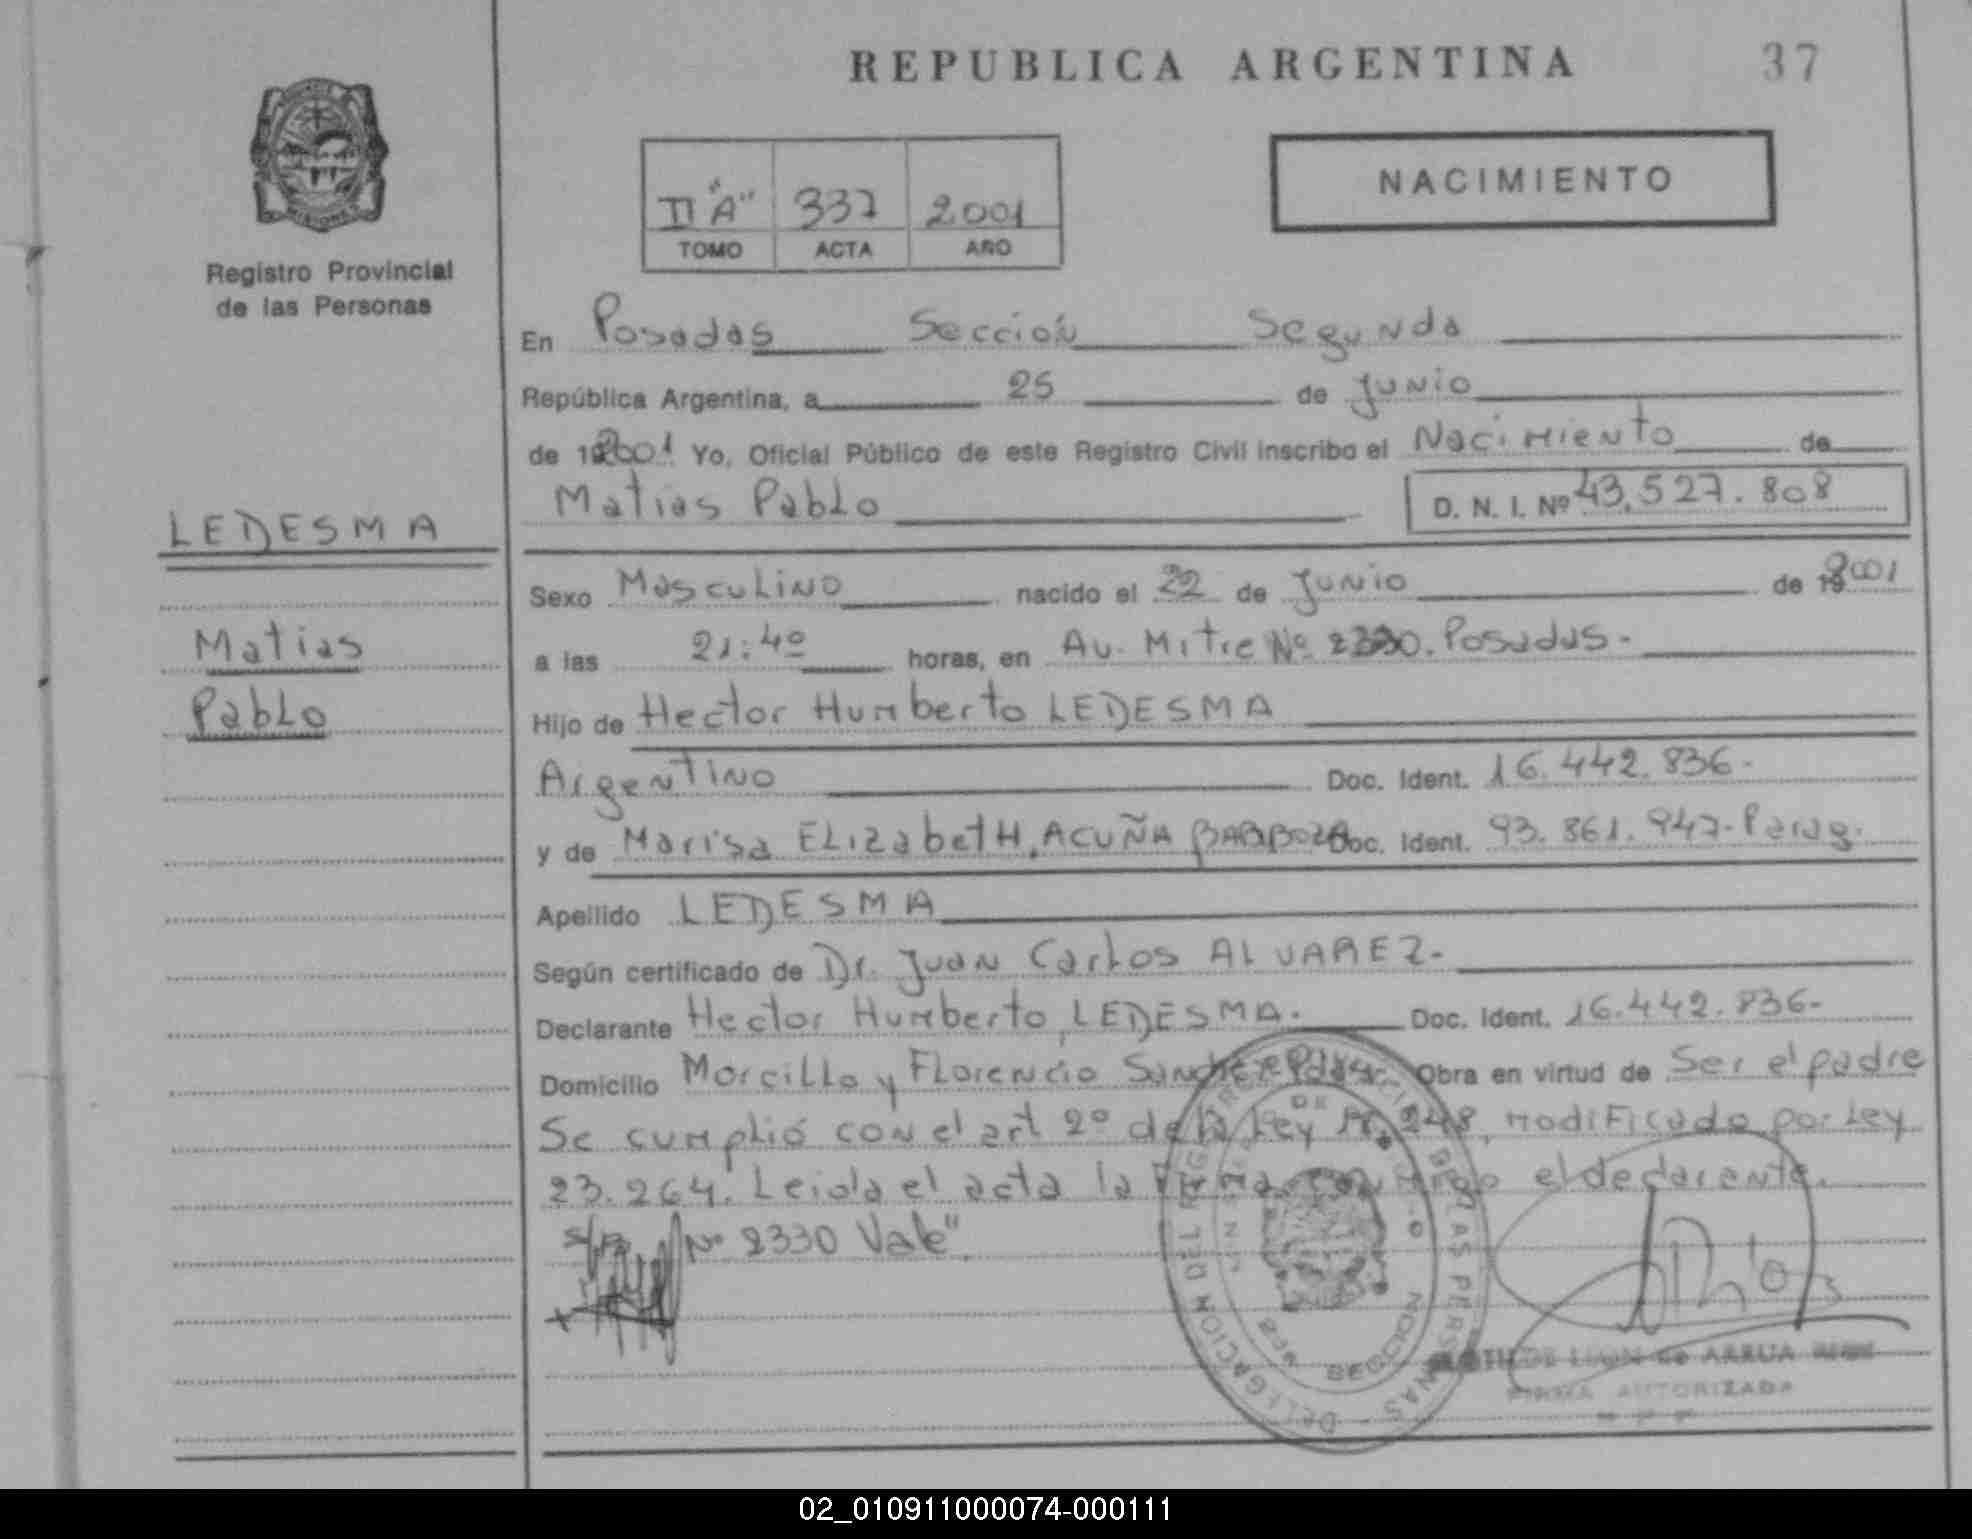 REPUBLICA ARGENTINA 37
NACIMIENTO
II "A" 337 2001
TOMO ACTA AÑO
Registro Provincial
de las Personas
LEDESMA
Matias
Pablo
En Posadas Sección Segunda
República Argentina, a 25 de Junio
de 2001 Yo, Oficial Público de este Registro Civil inscribo el Nacimiento de
Matias Pablo D. N. I. Nº 43.527.808
Sexo Masculino nacido el 22 de Junio de 2001
a las 21:40 horas, en Av. Mitre Nº 2330. Posadas.-
Hijo de Hector Humberto LEDESMA
Argentino Doc. Ident. 16.442.836-
y de Marisa ELizabetH. ACUÑA BARBOZA Doc. Ident. 93.861.947- Parag.
Apellido LEDESMA
Según certificado de Dr. Juan Carlos ALVAREZ-
Declarante Hector Humberto LEDESMA. Doc. Ident. 16.442.836-
Domicilio Morcillo y Florencio Sanchez Obra en virtud de Ser el padre
Se cumplió con el art 2º de la Ley 248, modificado por Ley
23.264. Leida el acta la Firma conmigo el declarante.
s/r Nº 2330 Vale"
DELEGACION DEL REGISTRO DE LAS PERSONAS
SECCION
LEON de ARRUA
FIRMA AUTORIZADA
02_010911000074-000111